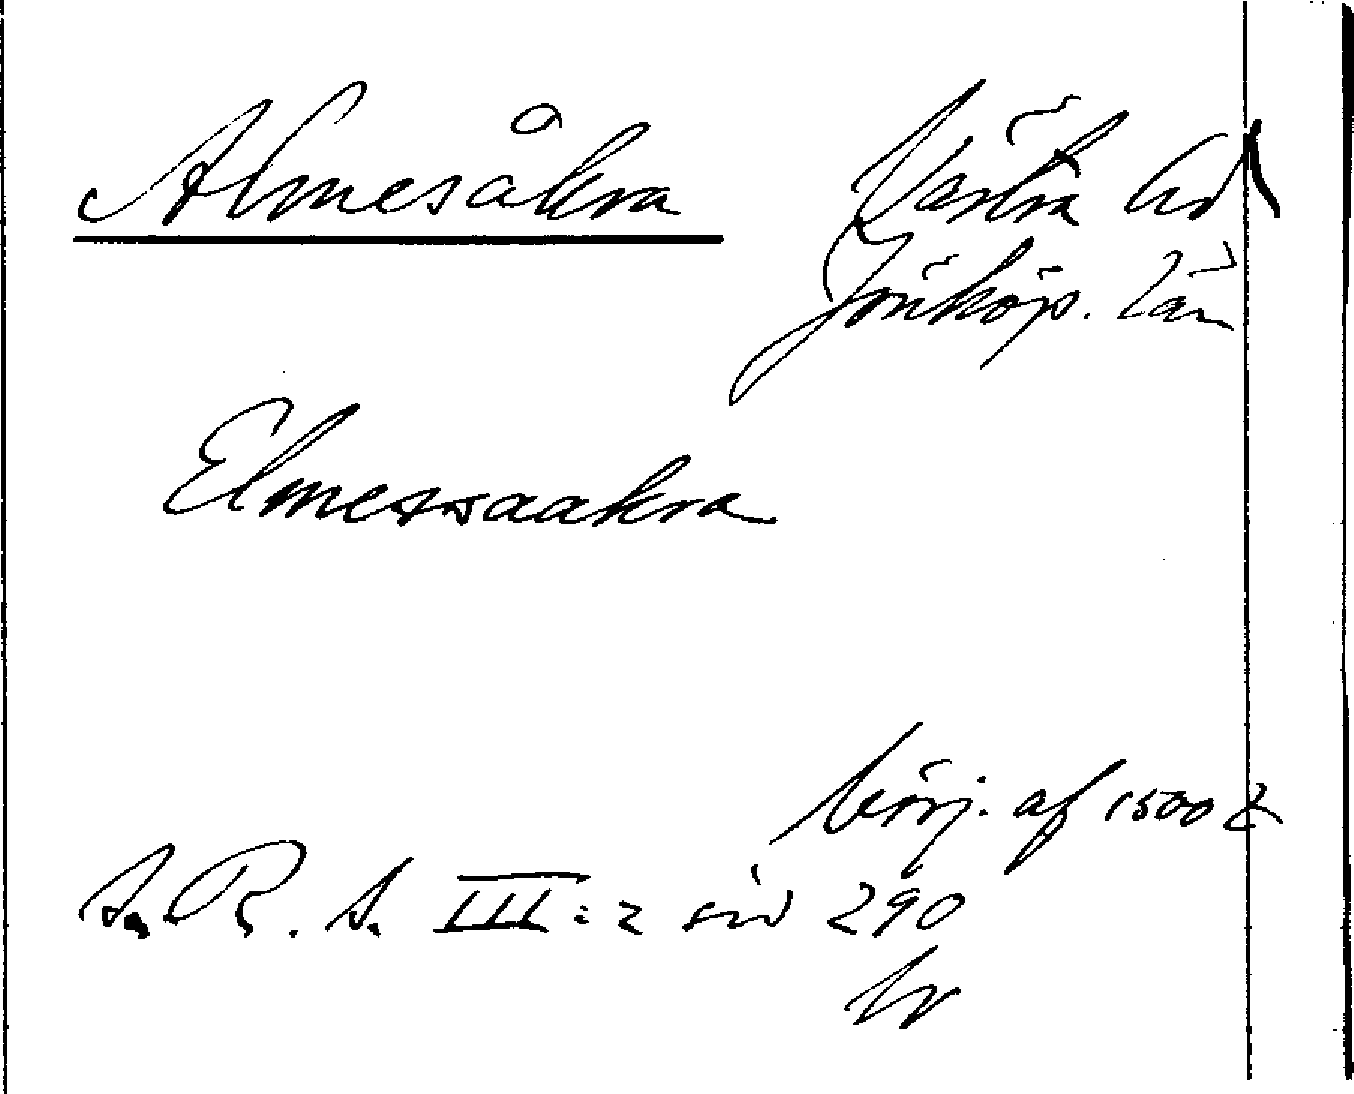 Almesåkra Västra hd
Jönköp. län
Elmessaakra
börj. af 1500 t
S.R.S. III:2 sid 290